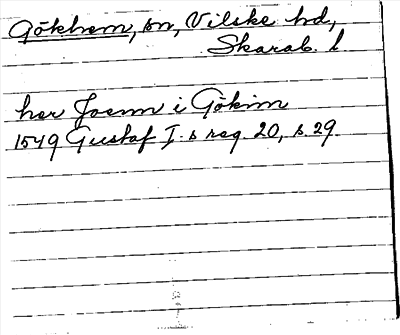 Gökhem, sn, Vilske hd,
Skarab. l
her Joenn i Gökim
1549 Gustaf I.s reg. 20, s. 29.